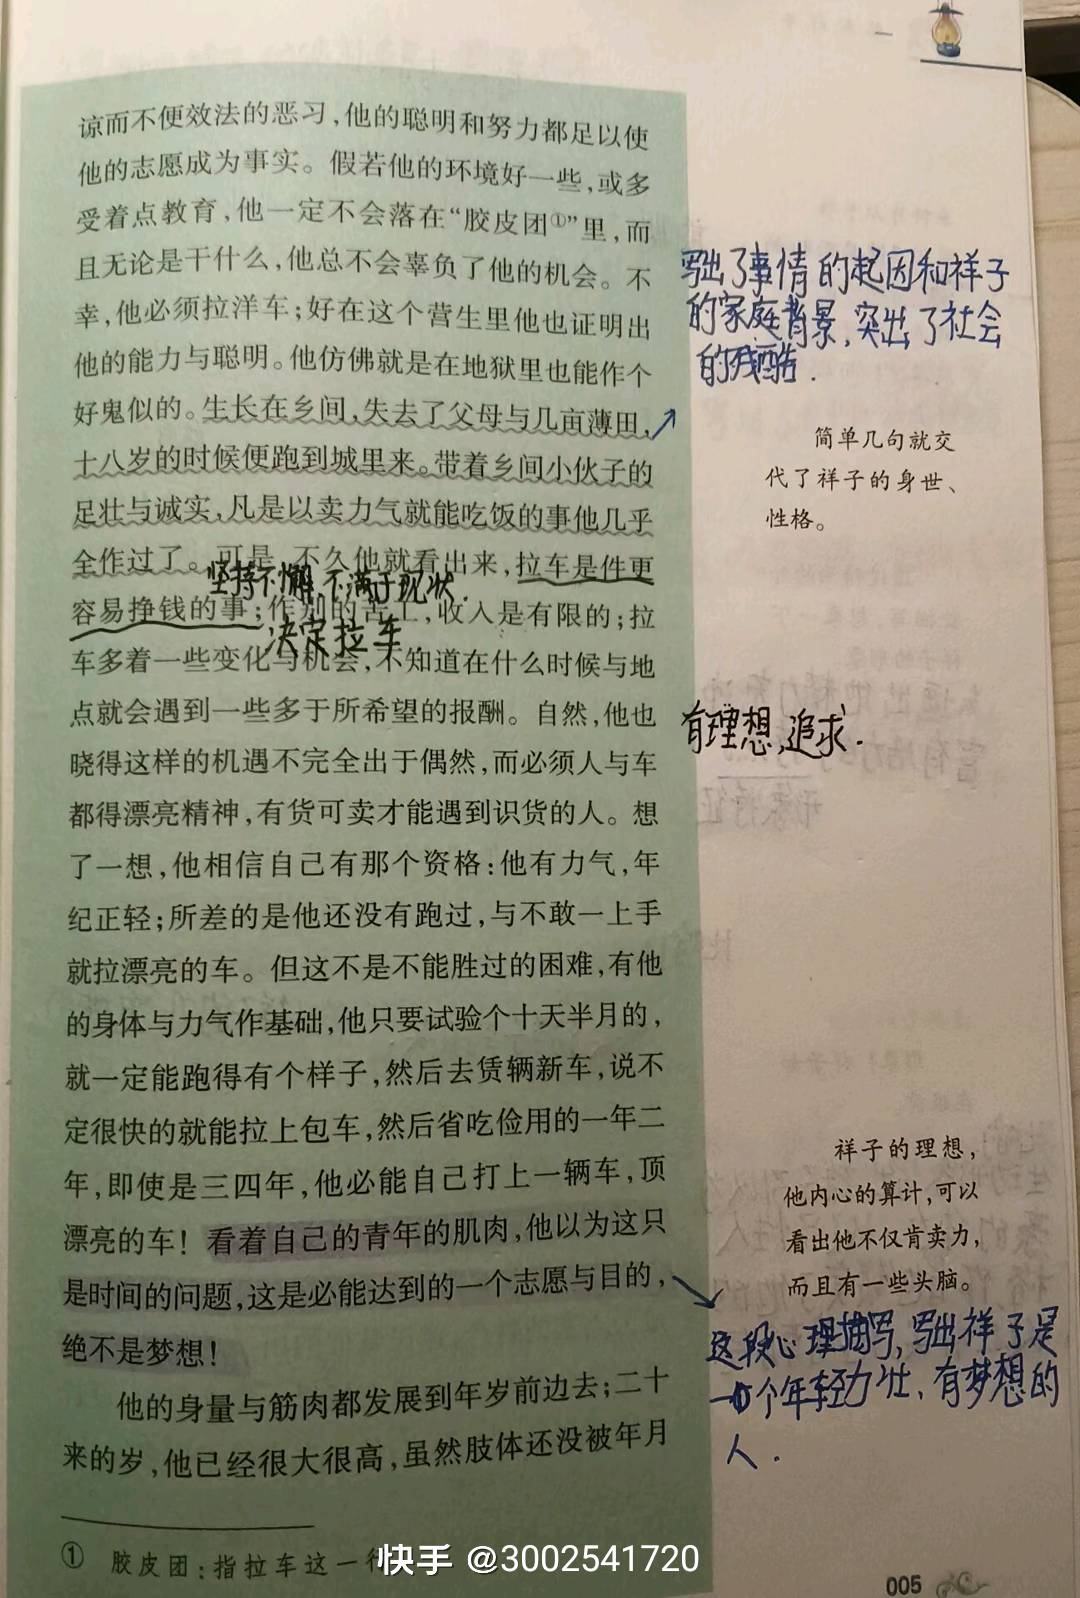 一
谅而不便效法的恶习,他的聪明和努力都足以使
他的志愿成为事实。假若他的环境好一些,或多
受着点教育,他一定不会落在“胶皮团①”里,而
且无论是干什么,他总不会辜负了他的机会。不
幸,他必须拉洋车;好在这个营生里他也证明出
他的能力与聪明。他仿佛就是在地狱里也能作个
好鬼似的。生长在乡间,失去了父母与几亩薄田,
十八岁的时候便跑到城里来。带着乡间小伙子的
足壮与诚实,凡是以卖力气就能吃饭的事他几乎
全作过了。可是,不久他就看出来,拉车是件更
坚持不懈,不满于现状.
容易挣钱的事;作别的苦工,收入是有限的;拉
决定拉车
车多着一些变化与机会,不知道在什么时候与地
点就会遇到一些多于所希望的报酬。自然,他也
晓得这样的机遇不完全出于偶然,而必须人与车
都得漂亮精神,有货可卖才能遇到识货的人。想
了一想,他相信自己有那个资格:他有力气,年
纪正轻;所差的是他还没有跑过,与不敢一上手
就拉漂亮的车。但这不是不能胜过的困难,有他
的身体与力气作基础,他只要试验个十天半月的,
就一定能跑得有个样子,然后去赁辆新车,说不
定很快的就能拉上包车,然后省吃俭用的一年二
年,即使是三四年,他必能自己打上一辆车,顶
漂亮的车!看着自己的青年的肌肉,他以为这只
是时间的问题,这是必能达到的一个志愿与目的,
绝不是梦想!
他的身量与筋肉都发展到年岁前边去;二十
来的岁,他已经很大很高,虽然肢体还没被年月
写出了事情的起因和祥子
的家庭背景,突出了社会
的残酷.
简单几句就交
代了祥子的身世、
性格。
有理想,追求.
祥子的理想,
他内心的算计,可以
看出他不仅肯卖力,
而且有一些头脑。
这段心理描写,写出祥子是
一个年轻力壮、有梦想的
人.
① 胶皮团:指拉车这一行
快手 @3002541720
005